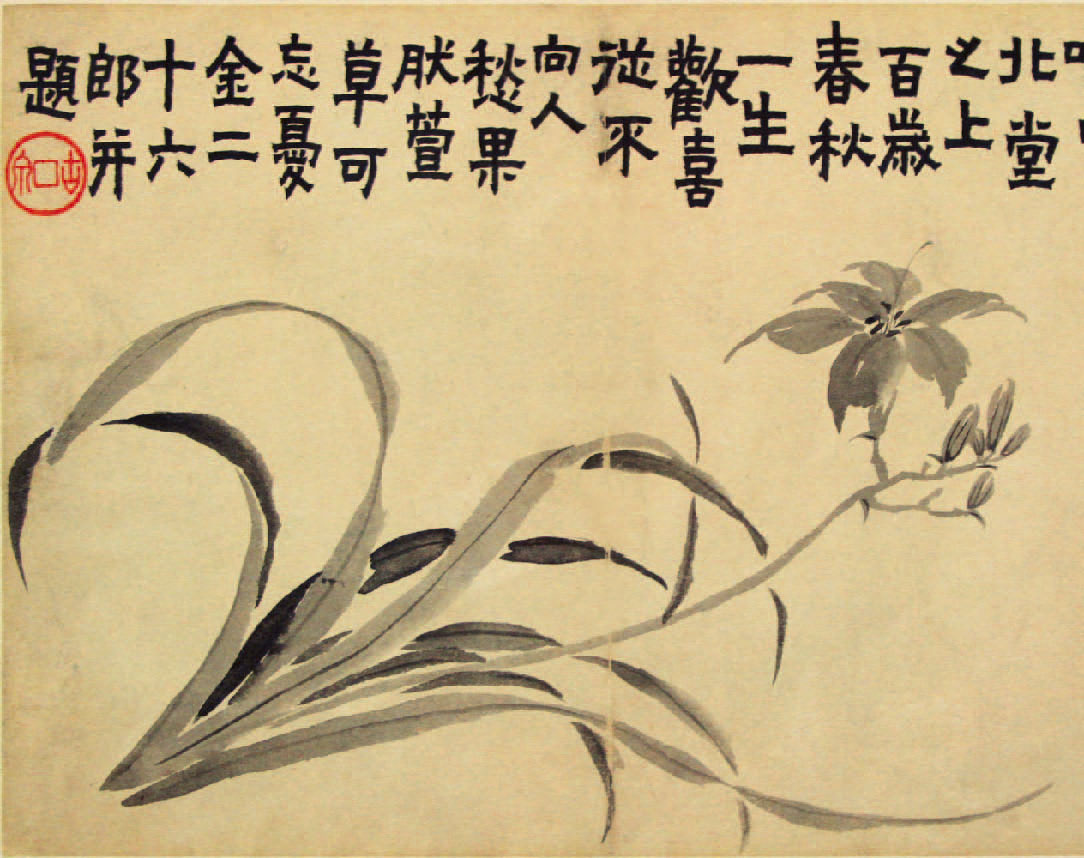 北堂
之上
百歲
春秋
一生
歡喜
從不
向人
愁果
肰萱
草可
忘憂
金二
十六
郎并
題